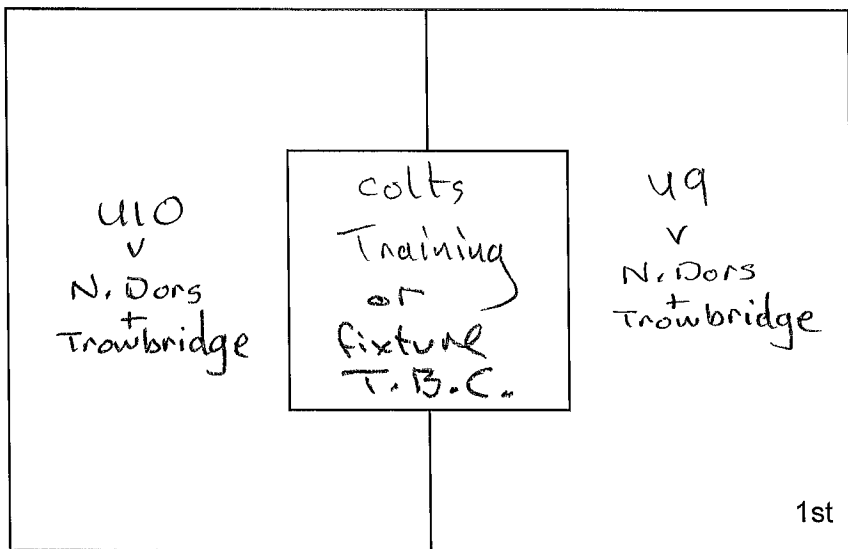 U10
v
N. Dors
+
Trowbridge
colts
Training
or
fixture
T.B.C.
U9
v
N. Dors
+
Trowbridge
1st